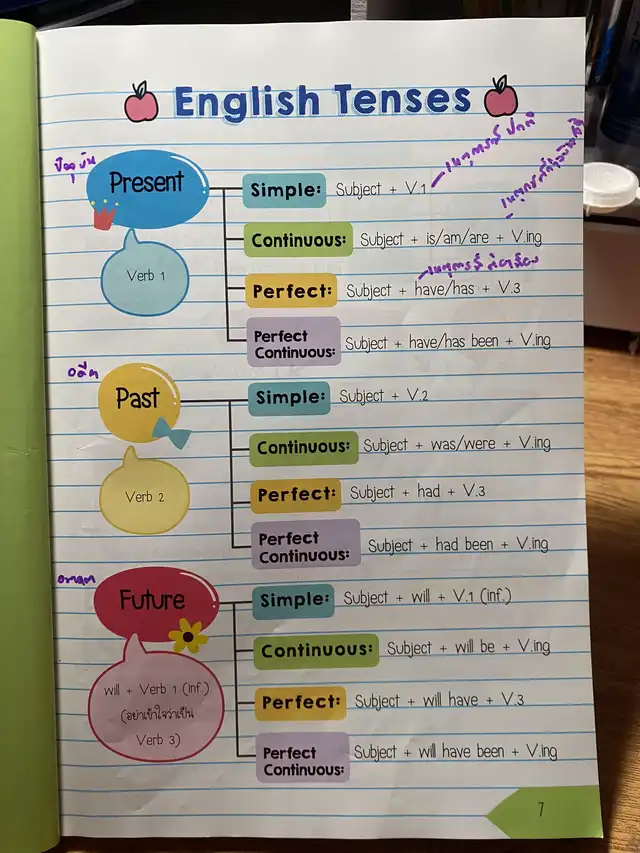 English Tenses
ปัจจุบัน
Present
Verb 1
Simple: Subject + V.1
เหตุการณ์ ปกติ
Continuous: Subject + is/am/are + V.ing
Perfect: Subject + have/has + V.3
Perfect
Continuous: Subject + have/has been + V.ing
อดีต
Past
Verb 2
Simple: Subject + V.2
Continuous: Subject + was/were + V.ing
Perfect: Subject + had + V.3
Perfect
Continuous: Subject + had been + V.ing
อนาคต
Future
will + Verb 1 (inf.)
(อย่าเข้าใจว่าเป็น
Verb 3)
Simple: Subject + will + V.1 (inf.)
Continuous: Subject + will be + V.ing
Perfect: Subject + will have + V.3
Perfect
Continuous: Subject + will have been + V.ing
7